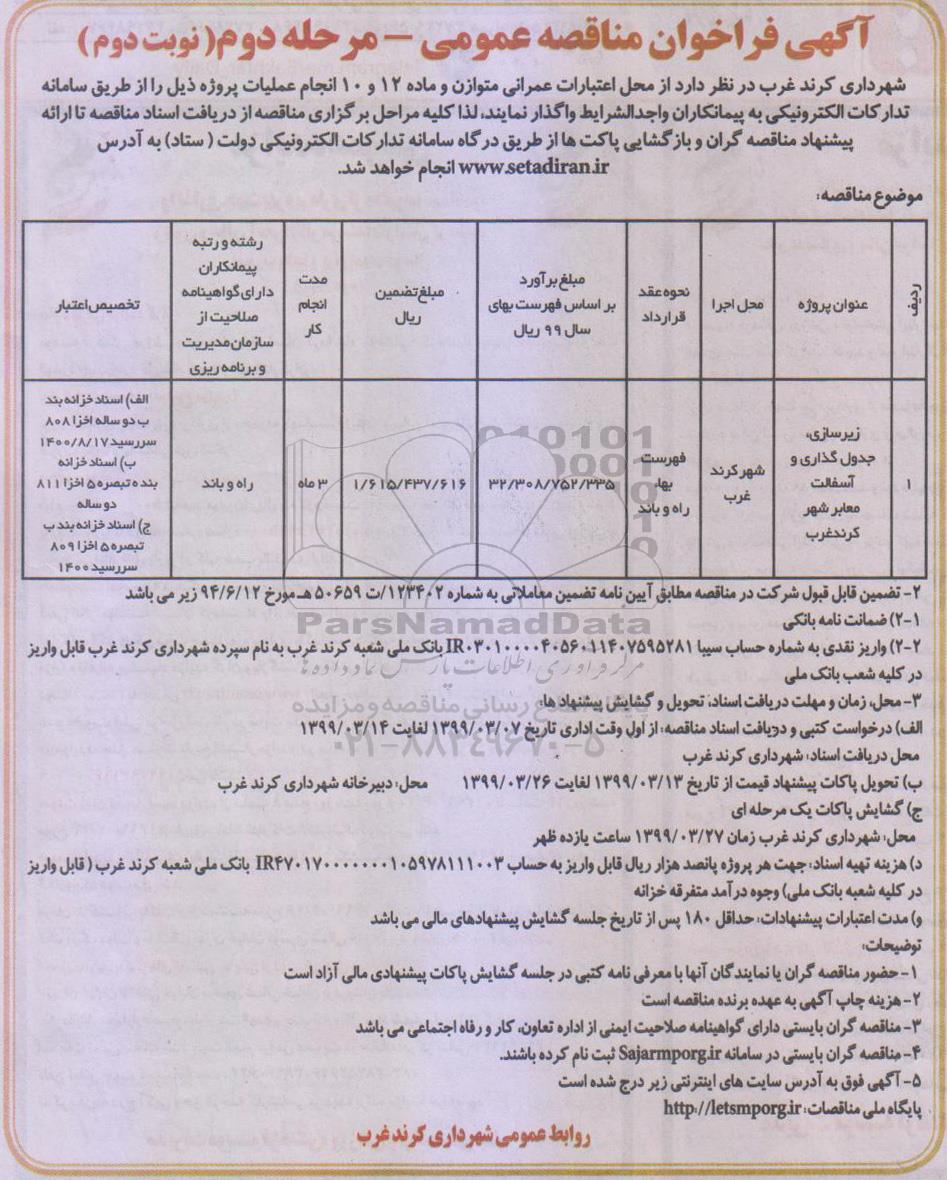 آگهی فراخوان مناقصه عمومی – مرحله دوم( نوبت دوم )
شهرداری کرند غرب در نظر دارد از محل اعتبارات عمرانی متوازن و ماده ۱۲ و ۱۰ انجام عملیات پروژه ذیل را از طریق سامانه
تدارکات الکترونیکی به پیمانکاران واجدالشرایط واگذار نمایند، لذا کلیه مراحل برگزاری مناقصه از دریافت اسناد مناقصه تا ارائه
پیشنهاد مناقصه گران و بازگشایی پاکت ها از طریق درگاه سامانه تدارکات الکترونیکی دولت ( ستاد) به آدرس
www.setadiran.ir انجام خواهد شد.
موضوع مناقصه:
ردیف
عنوان پروژه
محل اجرا
نحوه عقد
قرارداد
مبلغ برآورد
بر اساس فهرست بهای
سال ۹۹ ریال
مبلغ تضمین
ریال
مدت
انجام
کار
رشته و رتبه
پیمانکاران
دارای گواهینامه
صلاحیت از
سازمان مدیریت
و برنامه ریزی
تخصیص اعتبار
۱
زیرسازی،
جدول گذاری و
آسفالت
معابر شهر
کرندغرب
شهر کرند
غرب
فهرست
بهاء
راه و باند
۳۲/۳۰۸/۷۵۲/۳۳۵
۱/۶۱۵/۴۳۷/۶۱۶
۳ ماه
راه و باند
الف) اسناد خزانه بند
ب دو ساله اخزا ۸۰۸
سررسید ۱۴۰۰/۸/۱۷
ب) اسناد خزانه
بند ه تبصره ۵ اخزا ۸۱۱
دو ساله
ج) اسناد خزانه بند ب
تبصره ۵ اخزا ۸۰۹
سررسید ۱۴۰۰
۲- تضمین قابل قبول شرکت در مناقصه مطابق آیین نامه تضمین معاملاتی به شماره ۱۲۳۴۰۲/ت ۵۰۶۵۹ هـ مورخ ۹۴/۶/۱۲ زیر می باشد
۲-۱) ضمانت نامه بانکی
۲-۲) واریز نقدی به شماره حساب سیبا IR۰۳۰۱۰۰۰۰۴۰۵۶۰۱۱۴۰۷۵۹۵۲۸۱ بانک ملی شعبه کرند غرب به نام سپرده شهرداری کرند غرب قابل واریز
در کلیه شعب بانک ملی
۳- محل، زمان و مهلت دریافت اسناد، تحویل و گشایش پیشنهادها:
الف) درخواست کتبی و دریافت اسناد مناقصه: از اول وقت اداری تاریخ ۱۳۹۹/۰۳/۰۷ لغایت ۱۳۹۹/۰۳/۱۴
محل دریافت اسناد: شهرداری کرند غرب
ب) تحویل پاکات پیشنهاد قیمت از تاریخ ۱۳۹۹/۰۳/۱۳ لغایت ۱۳۹۹/۰۳/۲۶ محل: دبیرخانه شهرداری کرند غرب
ج) گشایش پاکات یک مرحله ای
محل: شهرداری کرند غرب زمان ۱۳۹۹/۰۳/۲۷ ساعت یازده ظهر
د) هزینه تهیه اسناد: جهت هر پروژه پانصد هزار ریال قابل واریز به حساب IR۴۷۰۱۷۰۰۰۰۰۰۰۱۰۵۹۷۸۱۱۱۰۰۳ بانک ملی شعبه کرند غرب ( قابل واریز
در کلیه شعبه بانک ملی) وجوه درآمد متفرقه خزانه
و) مدت اعتبارات پیشنهادات: حداقل ۱۸۰ پس از تاریخ جلسه گشایش پیشنهادهای مالی می باشد
توضیحات:
۱- حضور مناقصه گران یا نمایندگان آنها با معرفی نامه کتبی در جلسه گشایش پاکات پیشنهادی مالی آزاد است
۲- هزینه چاپ آگهی به عهده برنده مناقصه است
۳- مناقصه گران بایستی دارای گواهینامه صلاحیت ایمنی از اداره تعاون، کار و رفاه اجتماعی می باشد
۴- مناقصه گران بایستی در سامانه Sajarmporg.ir ثبت نام کرده باشند.
۵- آگهی فوق به آدرس سایت های اینترنتی زیر درج شده است
پایگاه ملی مناقصات: http://letsmporg.ir
روابط عمومی شهرداری کرند غرب
ParsNamadData
مرکز فرآوری اطلاعات پارس نماد داده ها
رسانی مناقصه و مزایده
۰۲۱-۸۸۳۴۹۶۷۰-۵